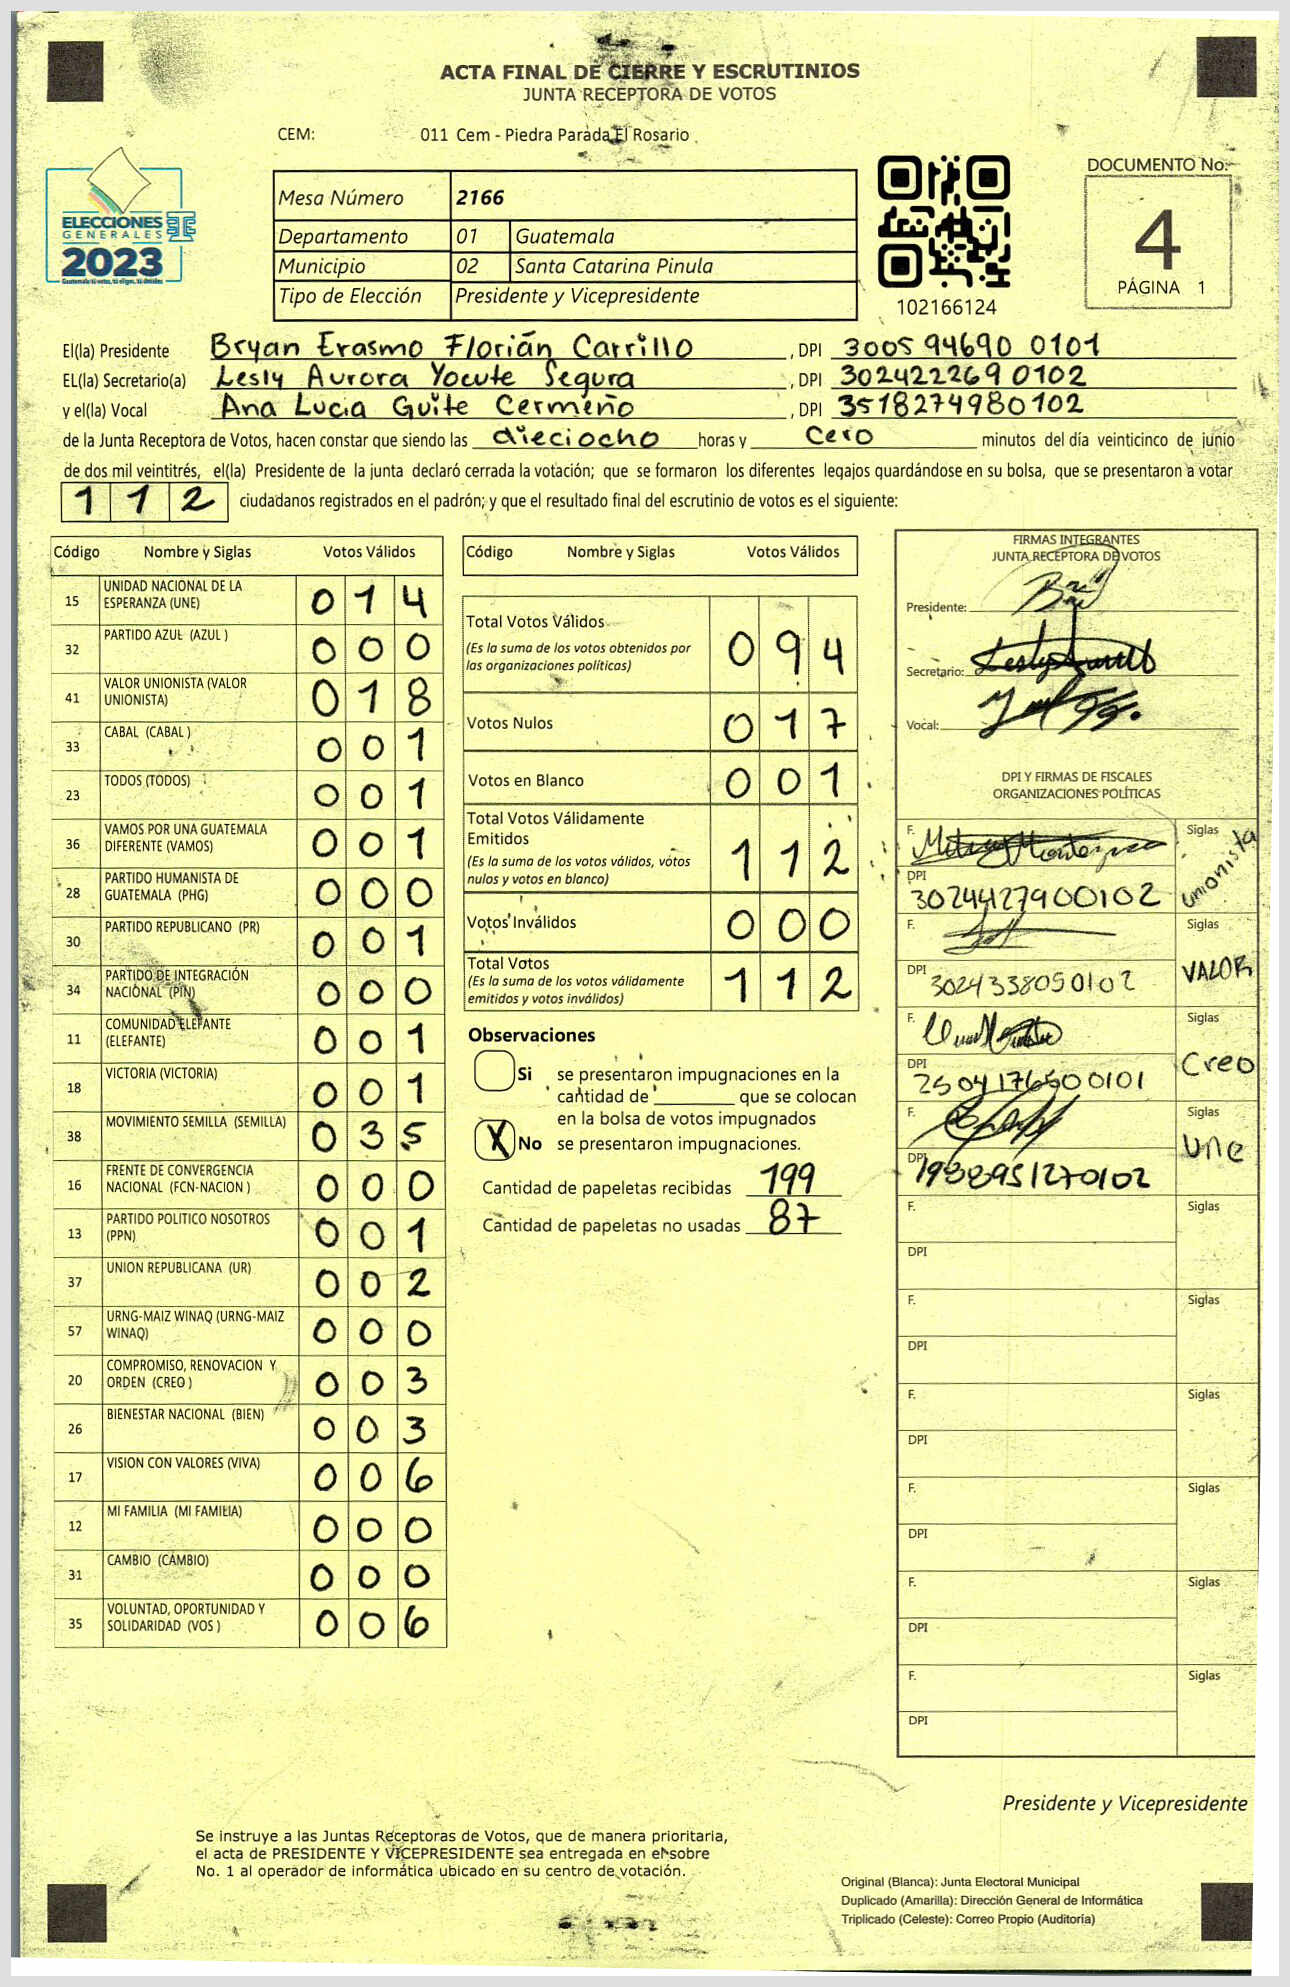 ACTA FINAL DE CIERRE Y ESCRUTINIOS
JUNTA RECEPTORA DE VOTOS
CEM: 011 Cem - Piedra Parada El Rosario
ELECCIONES
GENERALES
2023
Guatemala tú votas, tú eliges, tú decides
Mesa Número 2166
Departamento 01 Guatemala
Municipio 02 Santa Catarina Pinula
Tipo de Elección Presidente y Vicepresidente
102166124
DOCUMENTO No.
4
PÁGINA 1
El(la) Presidente Bryan Erasmo Florián Carrillo, DPI 3005 94690 0101
EL(la) Secretario(a) Lesly Aurora Yocute Segura, DPI 302422269 0102
y el(la) Vocal Ana Lucia Guite Cermeño, DPI 3518274980102
de la Junta Receptora de Votos, hacen constar que siendo las dieciocho horas y cero minutos del día veinticinco de junio
de dos mil veintitrés, el(la) Presidente de la junta declaró cerrada la votación; que se formaron los diferentes legajos quardándose en su bolsa, que se presentaron a votar
112 ciudadanos registrados en el padrón; y que el resultado final del escrutinio de votos es el siguiente:
Código Nombre y Siglas Votos Válidos
15 UNIDAD NACIONAL DE LA ESPERANZA (UNE) 014
32 PARTIDO AZUL (AZUL ) 000
41 VALOR UNIONISTA (VALOR UNIONISTA) 018
33 CABAL (CABAL ) 001
23 TODOS (TODOS) 001
36 VAMOS POR UNA GUATEMALA DIFERENTE (VAMOS) 001
28 PARTIDO HUMANISTA DE GUATEMALA (PHG) 000
30 PARTIDO REPUBLICANO (PR) 001
34 PARTIDO DE INTEGRACIÓN NACIONAL (PIN) 000
11 COMUNIDAD ELEFANTE (ELEFANTE) 001
18 VICTORIA (VICTORIA) 001
38 MOVIMIENTO SEMILLA (SEMILLA) 035
16 FRENTE DE CONVERGENCIA NACIONAL (FCN-NACION ) 000
13 PARTIDO POLITICO NOSOTROS (PPN) 001
37 UNION REPUBLICANA (UR) 002
57 URNG-MAIZ WINAQ (URNG-MAIZ WINAQ) 000
20 COMPROMISO, RENOVACION Y ORDEN (CREO ) 003
26 BIENESTAR NACIONAL (BIEN) 003
17 VISION CON VALORES (VIVA) 006
12 MI FAMILIA (MI FAMILIA) 000
31 CAMBIO (CAMBIO) 000
35 VOLUNTAD, OPORTUNIDAD Y SOLIDARIDAD (VOS ) 006
Código Nombre y Siglas Votos Válidos
Total Votos Válidos 094
(Es la suma de los votos obtenidos por
las organizaciones políticas)
Votos Nulos 017
Votos en Blanco 001
Total Votos Válidamente
Emitidos 112
(Es la suma de los votos válidos, votos
nulos y votos en blanco)
Votos Inválidos 000
Total Votos 112
(Es la suma de los votos válidamente
emitidos y votos inválidos)
Observaciones
Si se presentaron impugnaciones en la
cantidad de ________ que se colocan
en la bolsa de votos impugnados
X No se presentaron impugnaciones.
Cantidad de papeletas recibidas 199
Cantidad de papeletas no usadas 87
FIRMAS INTEGRANTES
JUNTA RECEPTORA DE VOTOS
Presidente:
Secretario:
Vocal:
DPI Y FIRMAS DE FISCALES
ORGANIZACIONES POLÍTICAS
F. Siglas unionista
DPI 30244127900102
F. Siglas VALOR
DPI 3024338050102
F. Siglas Creo
DPI 2504176500101
F. Siglas Une
DPI 1938951270102
F. Siglas
DPI
F. Siglas
DPI
F. Siglas
DPI
F. Siglas
DPI
F. Siglas
DPI
F. Siglas
DPI
Presidente y Vicepresidente
Se instruye a las Juntas Receptoras de Votos, que de manera prioritaria,
el acta de PRESIDENTE Y VICEPRESIDENTE sea entregada en el sobre
No. 1 al operador de informática ubicado en su centro de votación.
Original (Blanca): Junta Electoral Municipal
Duplicado (Amarilla): Dirección General de Informática
Triplicado (Celeste): Correo Propio (Auditoría)